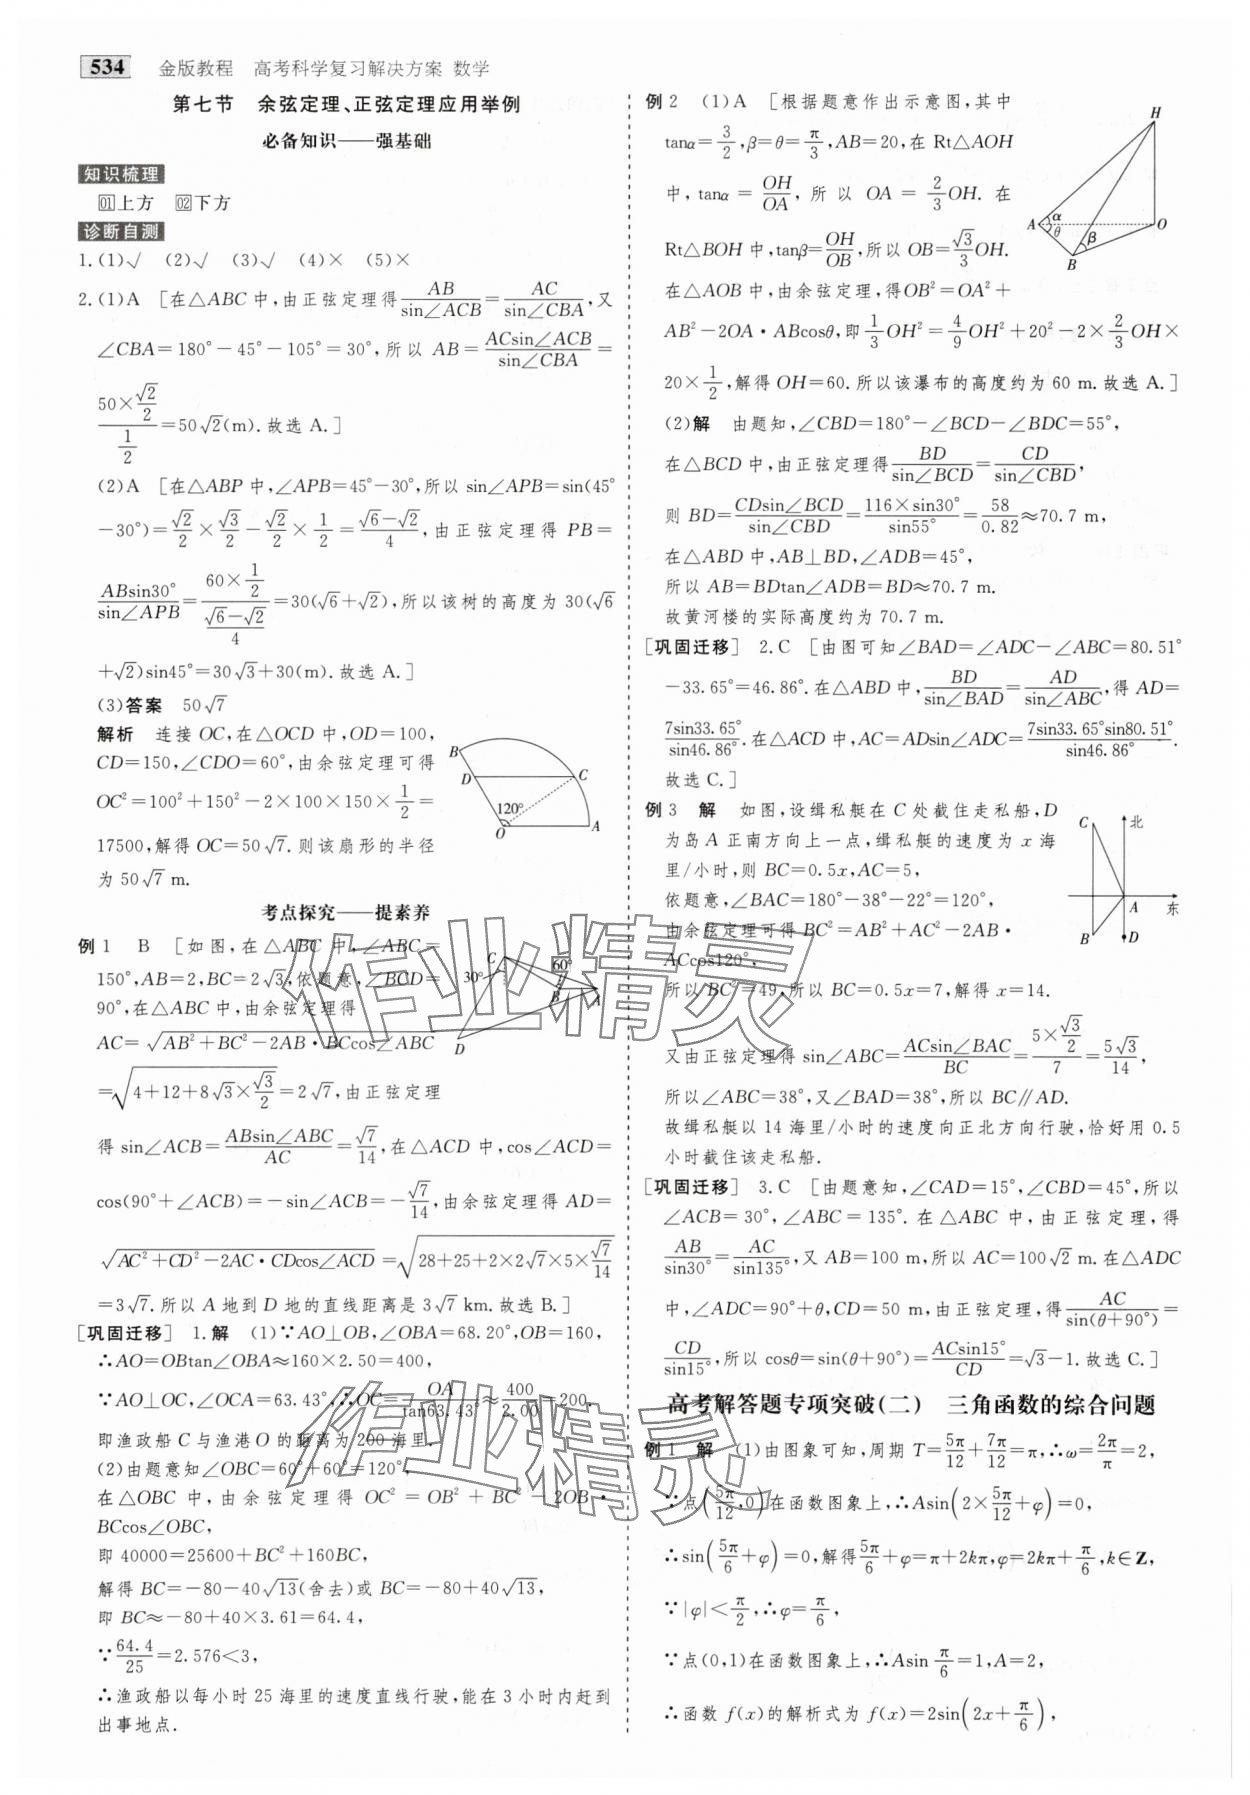 534 金版教程 高考科学复习解决方案 数学
第七节 余弦定理、正弦定理应用举例
必备知识——强基础
知识梳理
01上方 02下方
诊断自测
1.(1)√ (2)√ (3)√ (4)× (5)×
2.(1)A [在△ABC中,由正弦定理得AB/sin∠ACB=AC/sin∠CBA,又
∠CBA=180°-45°-105°=30°,所以 AB=ACsin∠ACB/sin∠CBA=
(50×√2/2)/(1/2)=50√2(m).故选A.]
(2)A [在△ABP中,∠APB=45°-30°,所以sin∠APB=sin(45°
-30°)=√2/2×√3/2-√2/2×1/2=(√6-√2)/4,由正弦定理得 PB=
ABsin30°/sin∠APB=(60×1/2)/((√6-√2)/4)=30(√6+√2),所以该树的高度为30(√6
+√2)sin45°=30√3+30(m).故选A.]
(3)答案 50√7
解析 连接OC,在△OCD中,OD=100,
CD=150,∠CDO=60°,由余弦定理可得
OC²=100²+150²-2×100×150×1/2=
17500,解得OC=50√7.则该扇形的半径
为50√7 m.
B D C 120° O A
考点探究——提素养
例1 B [如图,在△ABC中,∠ABC=
150°,AB=2,BC=2√3,依题意,∠BCD=
90°,在△ABC中,由余弦定理得
AC=√(AB²+BC²-2AB·BCcos∠ABC)
=√(4+12+8√3×√3/2)=2√7,由正弦定理
C 30° 60° B A D
得 sin∠ACB=ABsin∠ABC/AC=√7/14,在△ACD中,cos∠ACD=
cos(90°+∠ACB)=-sin∠ACB=-√7/14,由余弦定理得 AD=
√(AC²+CD²-2AC·CDcos∠ACD)=√(28+25+2×2√7×5×√7/14)
=3√7.所以A地到D地的直线距离是3√7 km.故选B.]
[巩固迁移] 1.解 (1)∵AO⊥OB,∠OBA=68.20°,OB=160,
∴AO=OBtan∠OBA≈160×2.50=400,
∵AO⊥OC,∠OCA=63.43°,∴OC=OA/tan63.43°≈400/2.00=200.
即渔政船C与渔港O的距离为200海里.
(2)由题意知∠OBC=60°+60°=120°,
在△OBC中,由余弦定理得 OC²=OB²+BC²-2OB·
BCcos∠OBC,
即 40000=25600+BC²+160BC,
解得 BC=-80-40√13(舍去)或 BC=-80+40√13,
即 BC≈-80+40×3.61=64.4,
∵64.4/25=2.576<3,
∴渔政船以每小时25海里的速度直线行驶,能在3小时内赶到
出事地点.
例2 (1)A [根据题意作出示意图,其中
tanα=3/2,β=θ=π/3,AB=20,在Rt△AOH
中,tanα=OH/OA,所以 OA=2/3OH.在
Rt△BOH中,tanβ=OH/OB,所以OB=√3/3OH.
H A α θ O β B
在△AOB中,由余弦定理,得OB²=OA²+
AB²-2OA·ABcosθ,即1/3OH²=4/9OH²+20²-2×2/3OH×
20×1/2,解得OH=60.所以该瀑布的高度约为60 m.故选A.]
(2)解 由题知,∠CBD=180°-∠BCD-∠BDC=55°,
在△BCD中,由正弦定理得BD/sin∠BCD=CD/sin∠CBD,
则 BD=CDsin∠BCD/sin∠CBD=116×sin30°/sin55°=58/0.82≈70.7 m,
在△ABD中,AB⊥BD,∠ADB=45°,
所以 AB=BDtan∠ADB=BD≈70.7 m.
故黄河楼的实际高度约为70.7 m.
[巩固迁移] 2.C [由图可知∠BAD=∠ADC-∠ABC=80.51°
-33.65°=46.86°.在△ABD中,BD/sin∠BAD=AD/sin∠ABC,得 AD=
7sin33.65°/sin46.86°.在△ACD中,AC=ADsin∠ADC=7sin33.65°sin80.51°/sin46.86°.
故选C.]
例3 解 如图,设缉私艇在C处截住走私船,D
为岛A正南方向上一点,缉私艇的速度为x海
里/小时,则 BC=0.5x,AC=5,
依题意,∠BAC=180°-38°-22°=120°,
由余弦定理可得BC²=AB²+AC²-2AB·
ACcos120°,
C 北 A 东 B D
所以 BC²=49,所以 BC=0.5x=7,解得 x=14.
又由正弦定理得 sin∠ABC=ACsin∠BAC/BC=(5×√3/2)/7=5√3/14,
所以∠ABC=38°,又∠BAD=38°,所以 BC∥AD.
故缉私艇以14海里/小时的速度向正北方向行驶,恰好用0.5
小时截住该走私船.
[巩固迁移] 3.C [由题意知,∠CAD=15°,∠CBD=45°,所以
∠ACB=30°,∠ABC=135°.在△ABC中,由正弦定理,得
AB/sin30°=AC/sin135°,又 AB=100 m,所以 AC=100√2 m.在△ADC
中,∠ADC=90°+θ,CD=50 m,由正弦定理,得AC/sin(θ+90°)=
CD/sin15°,所以 cosθ=sin(θ+90°)=ACsin15°/CD=√3-1.故选C.]
高考解答题专项突破(二) 三角函数的综合问题
例1 解 (1)由图象可知,周期 T=5π/12+7π/12=π,∴ω=2π/π=2,
∵点(5π/12,0)在函数图象上,∴Asin(2×5π/12+φ)=0,
∴sin(5π/6+φ)=0,解得5π/6+φ=π+2kπ,φ=2kπ+π/6,k∈Z,
∵|φ|<π/2,∴φ=π/6,
∵点(0,1)在函数图象上,∴Asin π/6=1,A=2,
∴函数 f(x)的解析式为 f(x)=2sin(2x+π/6),
作业精灵
作业精灵